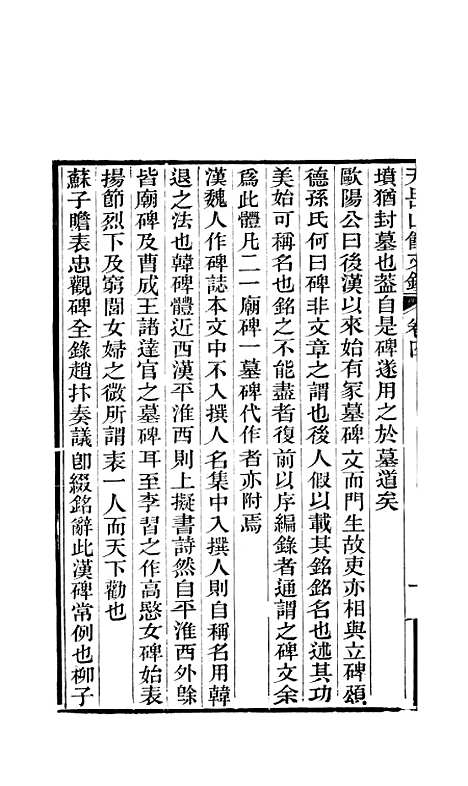 天岳山館文鈔 卷四 一
墳猶封墓也蓋自是碑遂用之於墓道矣
歐陽公曰後漢以來始有冢墓碑文而門生故吏亦相與立碑頌
德孫氏何曰碑非文章之謂也後人假以載其銘銘名也述其功
美始可稱名也銘之不能盡者復前以序編錄者通謂之碑文余
爲此體凡二一廟碑一墓碑代作者亦附焉
漢魏人作碑誌本文中不入撰人名集中入撰人則自稱名用韓
退之法也韓碑體近西漢平淮西則上擬書詩然自平淮西外餘
皆廟碑及曹成王諸達官之墓碑耳至李習之作高愍女碑始表
揚節烈下及窮閭女婦之微所謂表一人而天下勸也
蘇子瞻表忠觀碑全錄趙抃奏議卽綴銘辭此漢碑常例也柳子